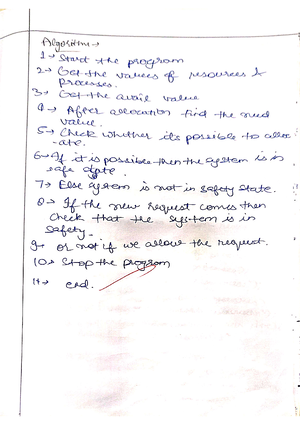 Algorithm →
1 → Start the program
2 → Get the values of resources &
processes.
3 → Get the avail value
4 → After allocation find the need
value.
5 → Check whether its possible to alloc-
ate.
6 → If it is possible then the system is in
safe state.
7 → Else system is not in safety state.
8 → If the new request comes then
check that the system is in
safety.
9 → or not if we allow the request.
10 → Stop the program
11 → end.